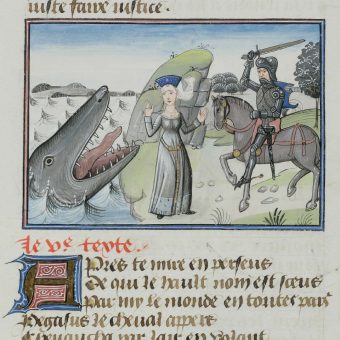 iuste faire iustice.
Le ve texte.
Apres te mire en perseus
De qui le hault nom est sceus
Par my le monde en toutes pars
Pegasus le cheual appers
Cheuaucha par lair en volant